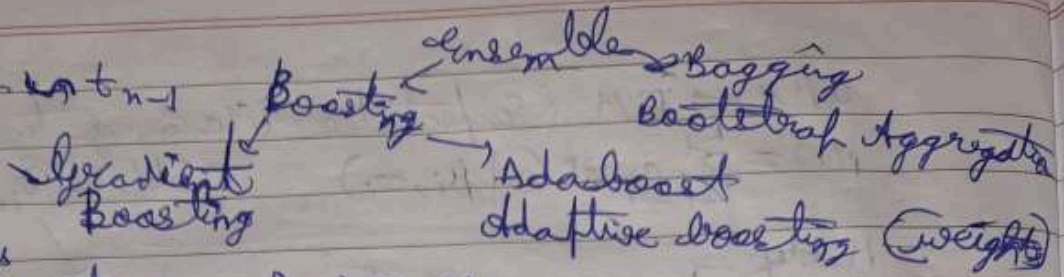 Ensemble
t n-1 Boosting Bagging
Bootstrap Aggregation
Gradient Adaboost
Boosting Adaptive boosting (weights)